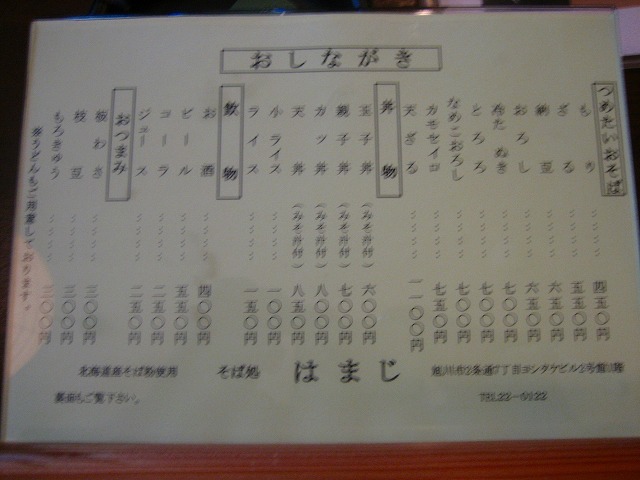 おしながき
つめたいおそば
もり 〜〜〜〜 四五〇円
ざる 〜〜〜〜 五五〇円
納豆 〜〜〜〜 六五〇円
おろし 〜〜〜〜 六五〇円
冷たぬき 〜〜〜〜 七〇〇円
とろろ 〜〜〜〜 七〇〇円
なめこおろし 〜〜〜〜 七〇〇円
カモセイロ 〜〜〜〜 七五〇円
天ざる 〜〜〜〜 一一〇〇円
丼物
玉子丼（みそ汁付） 六〇〇円
親子丼（みそ汁付） 七〇〇円
カツ丼（みそ汁付） 八〇〇円
天丼（みそ汁付） 八五〇円
小ライス 〜〜〜〜 一〇〇円
ライス 〜〜〜〜 一五〇円
飲物
お酒 〜〜〜〜 四〇〇円
ビール 〜〜〜〜 五五〇円
コーラ 〜〜〜〜 二五〇円
ジュース 〜〜〜〜 二五〇円
おつまみ
板わさ 〜〜〜〜 三〇〇円
枝豆 〜〜〜〜 三〇〇円
もろきゅう 〜〜〜〜 三〇〇円
茶うどんもご用意しております。
北海道産そば粉使用
そば処 はまじ
旭川市2条通7丁目ヨシタケビル2号館1階
裏面もご覧下さい。
TEL22-0122